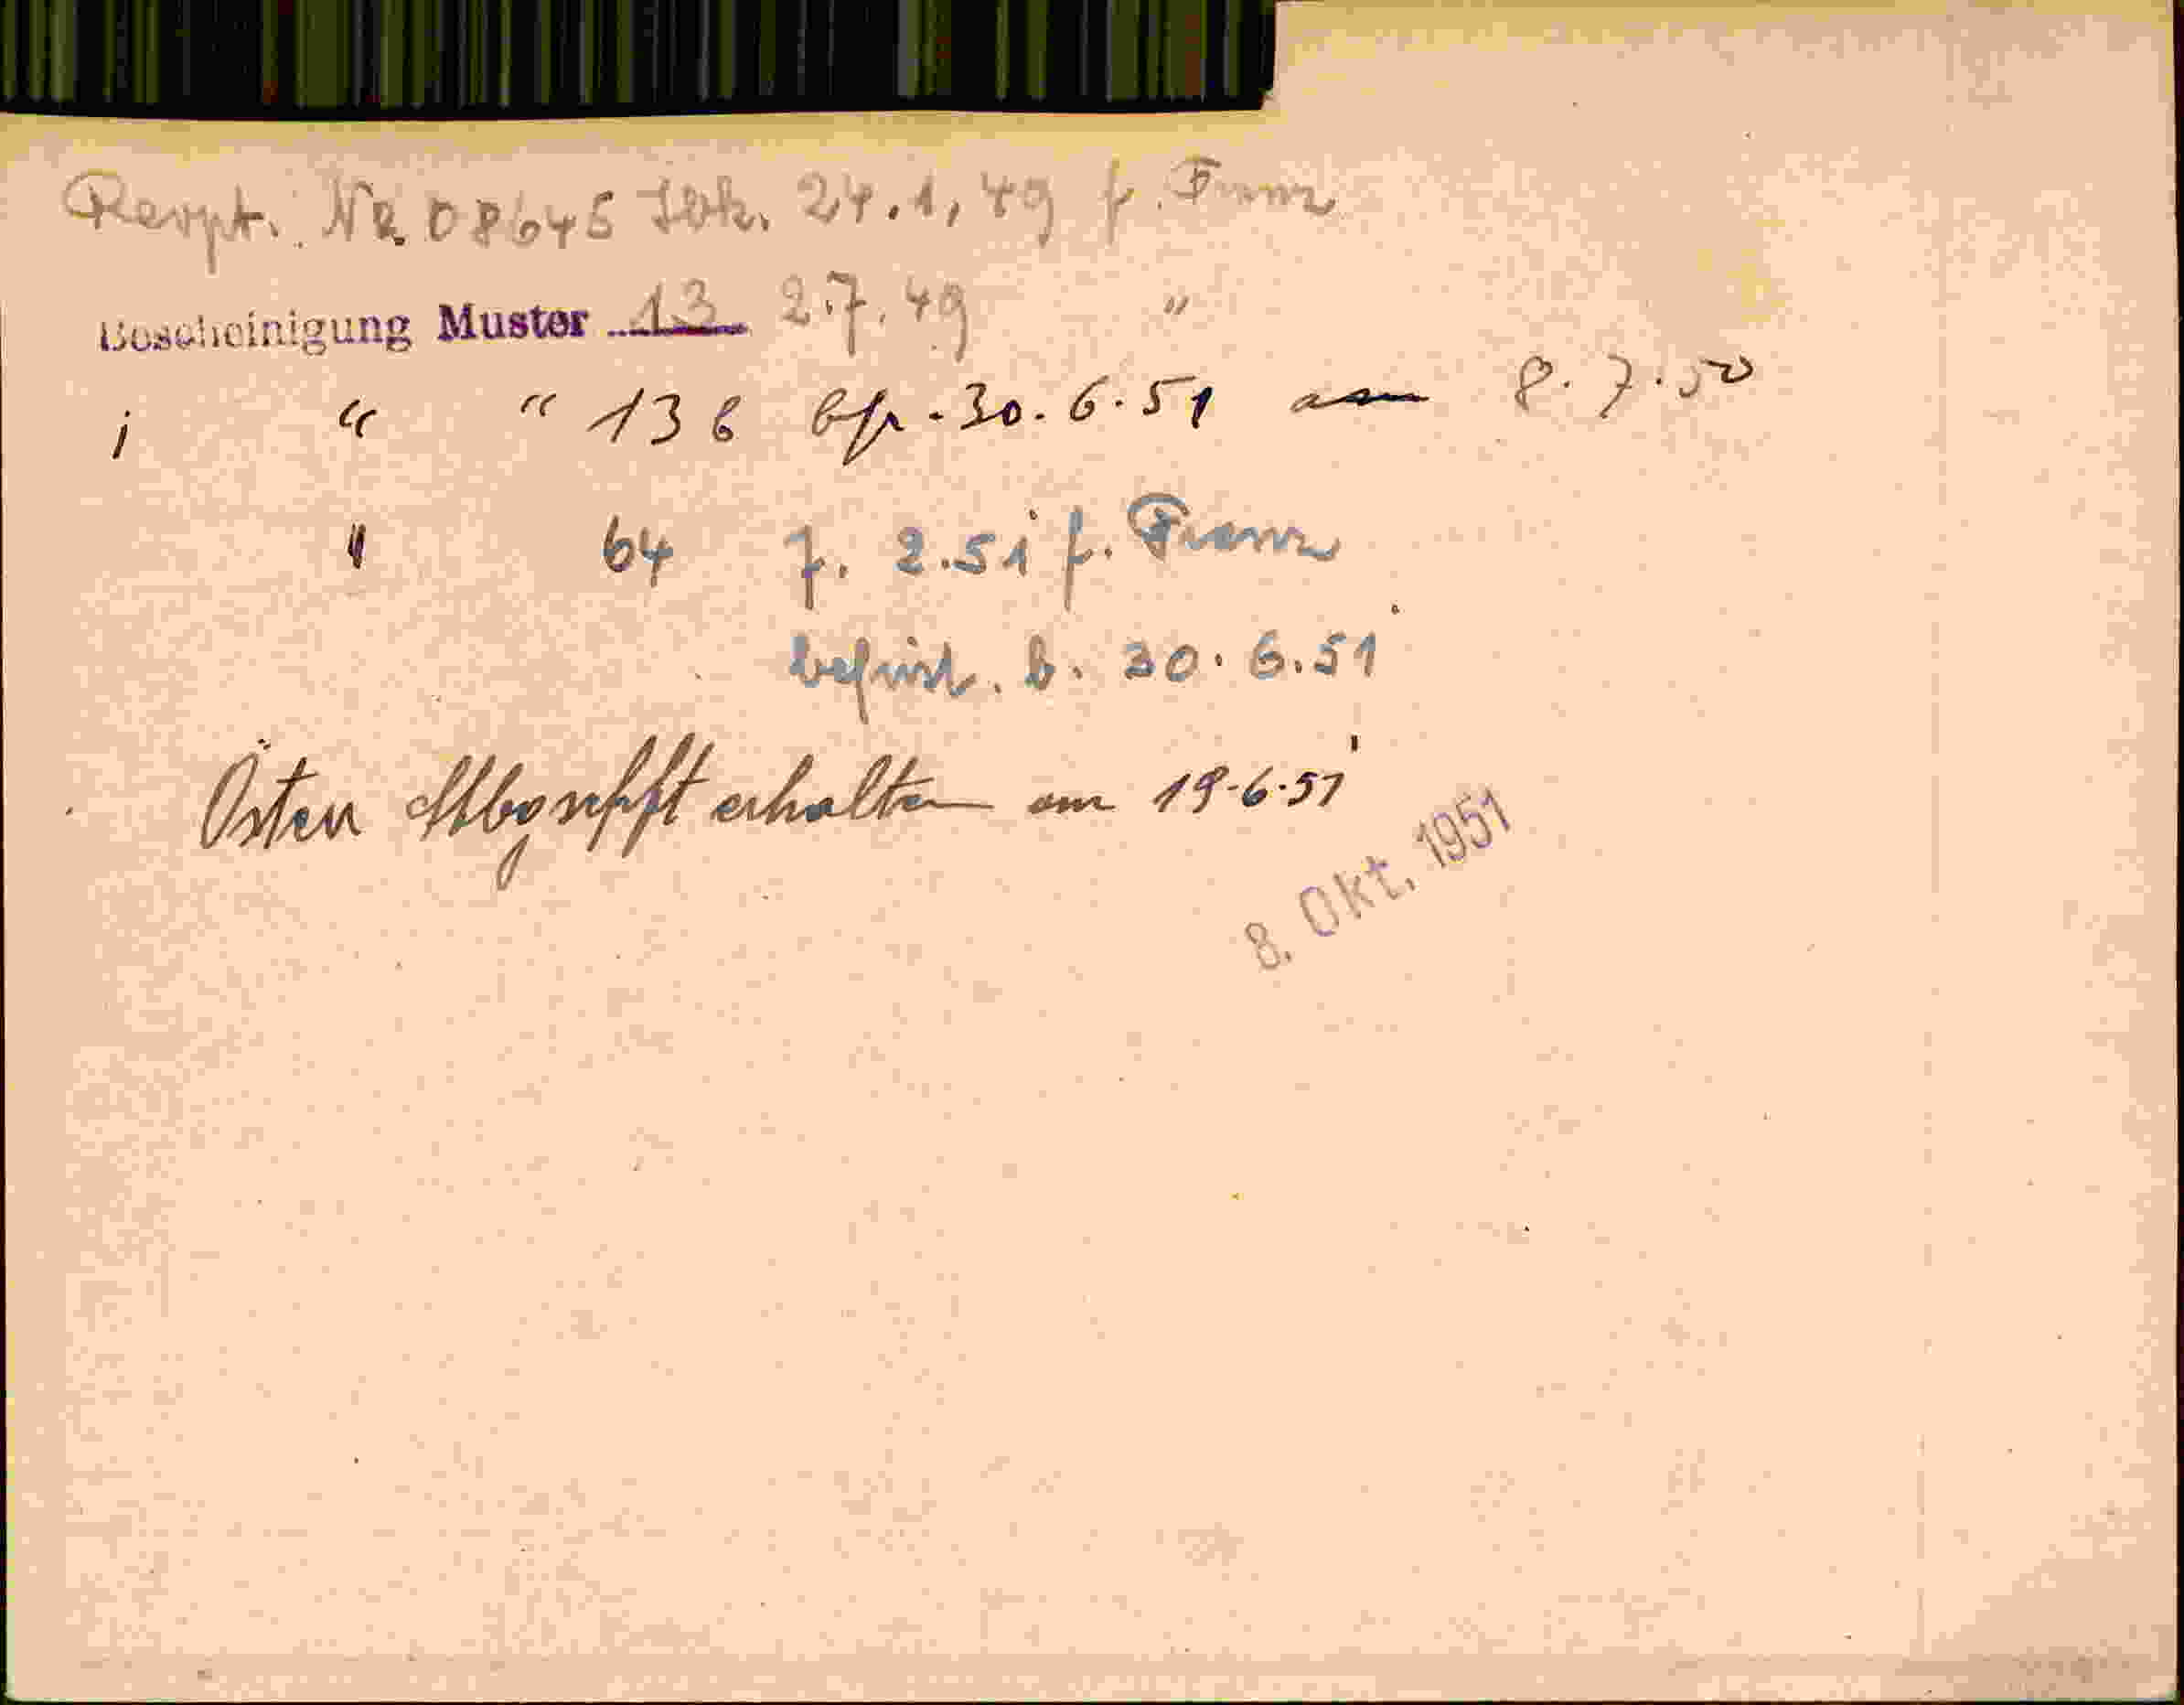 Rexpt. Nr 08645 24.1.49 f. Franz
Bescheinigung Muster 13 2.7.49 "
" " 13 b bfr. 30.6.51 am 8.7.50
" 64 7. 2.51 f. Franz
befrist. b. 30.6.51
Östen erhalten am 19.6.51
8. Okt. 1951